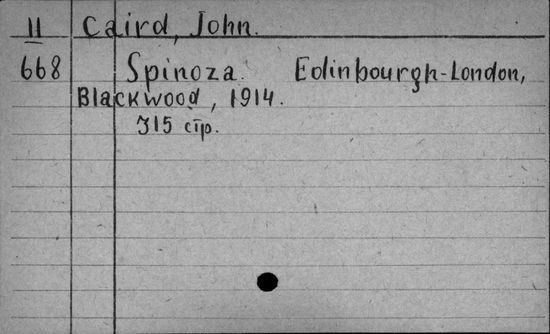 II Caird, John.
668 Spinoza. Edinbourgh-London,
Blackwood, 1914.
315 cтp.